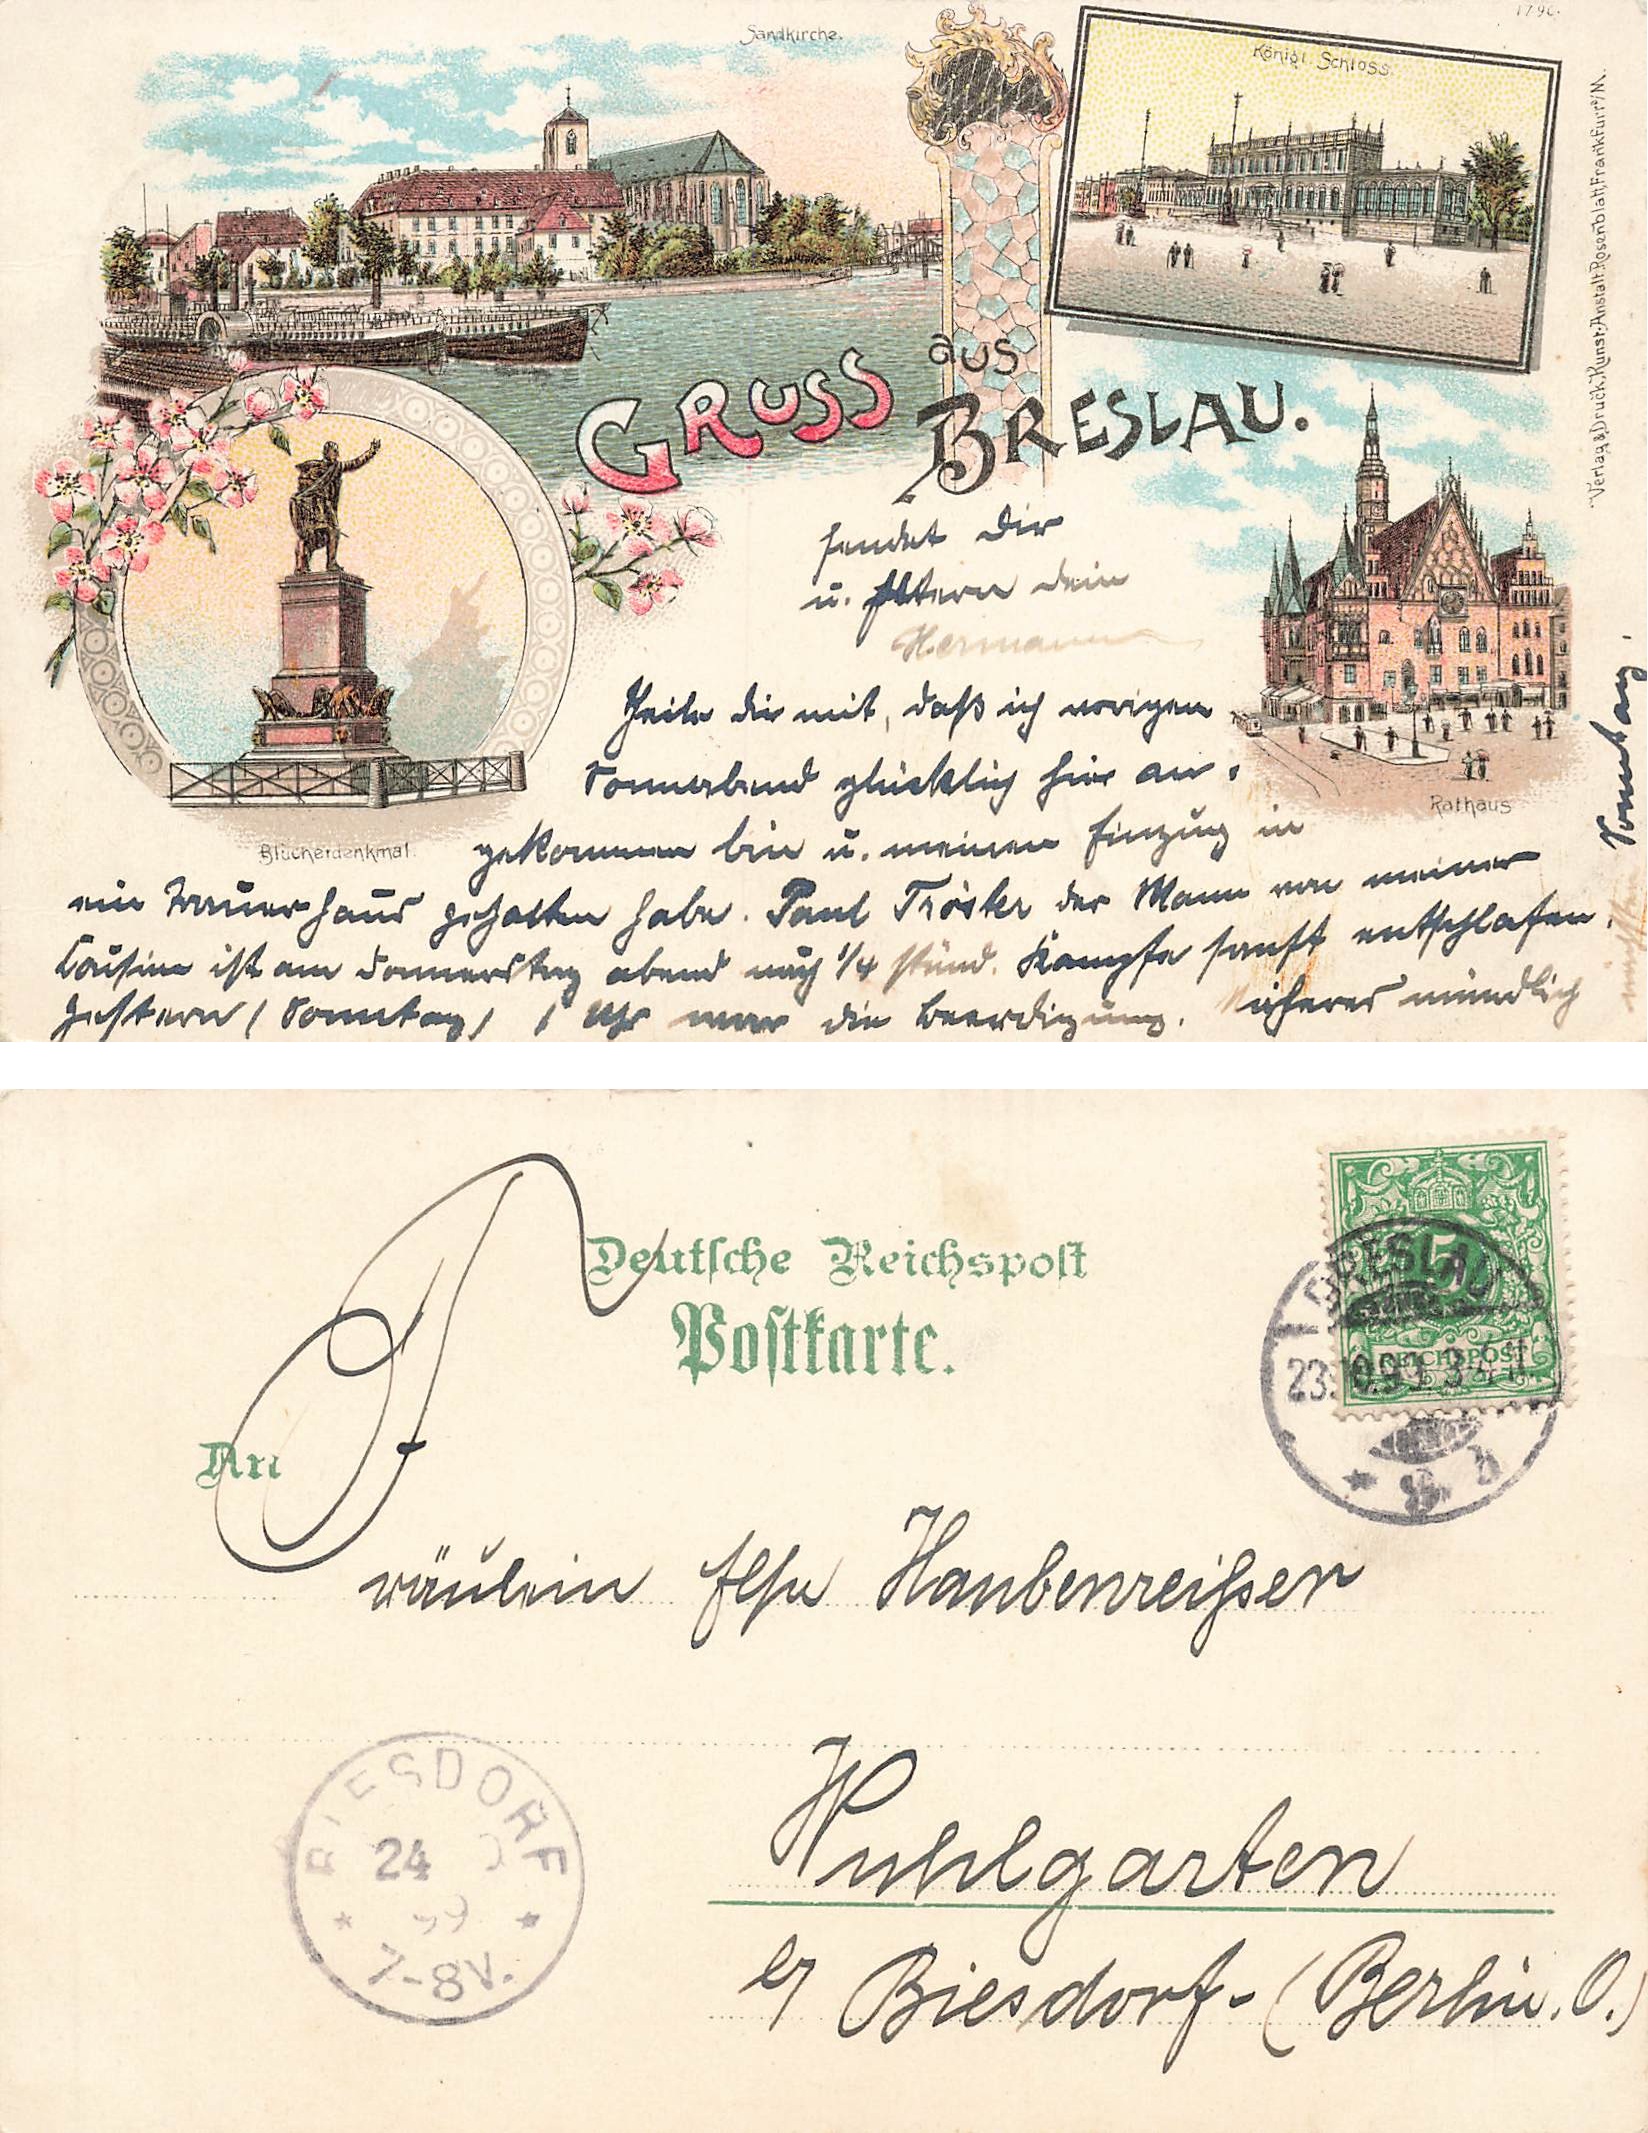 Sandkirche.
Königl Schloss
Verlag & Druck, Kunst-Anstalt Rosenblatt, Frankfurt a/M.
GRUSS aus BRESLAU.
sendet Dir
u. Eltern dein
Hermann
Theile dir mit, daß ich vorigen
Sonnabend glücklich hier an-
gekommen bin u. meinen Einzug in
ein Trauerhaus gehalten habe. Paul Tröster der Mann von meiner
Cousine ist am Donnerstag abend nach 1/4 stünd. Kampfe sanft entschlafen.
Gestern (Sonntag) 1 Uhr war die Beerdigung. Näheres mündlich
nächsten
Sonntag.
Blücherdenkmal.
Rathaus
Deutsche Reichspost
Postkarte.
An
BRESLAU
23.10.99. 3-4 N
5
REICHSPOST
Fräulein Else Haubenreißer
BIESDORF
24
99
7-8V.
Wuhlgarten
b/ Biesdorf- (Berlin. O.)